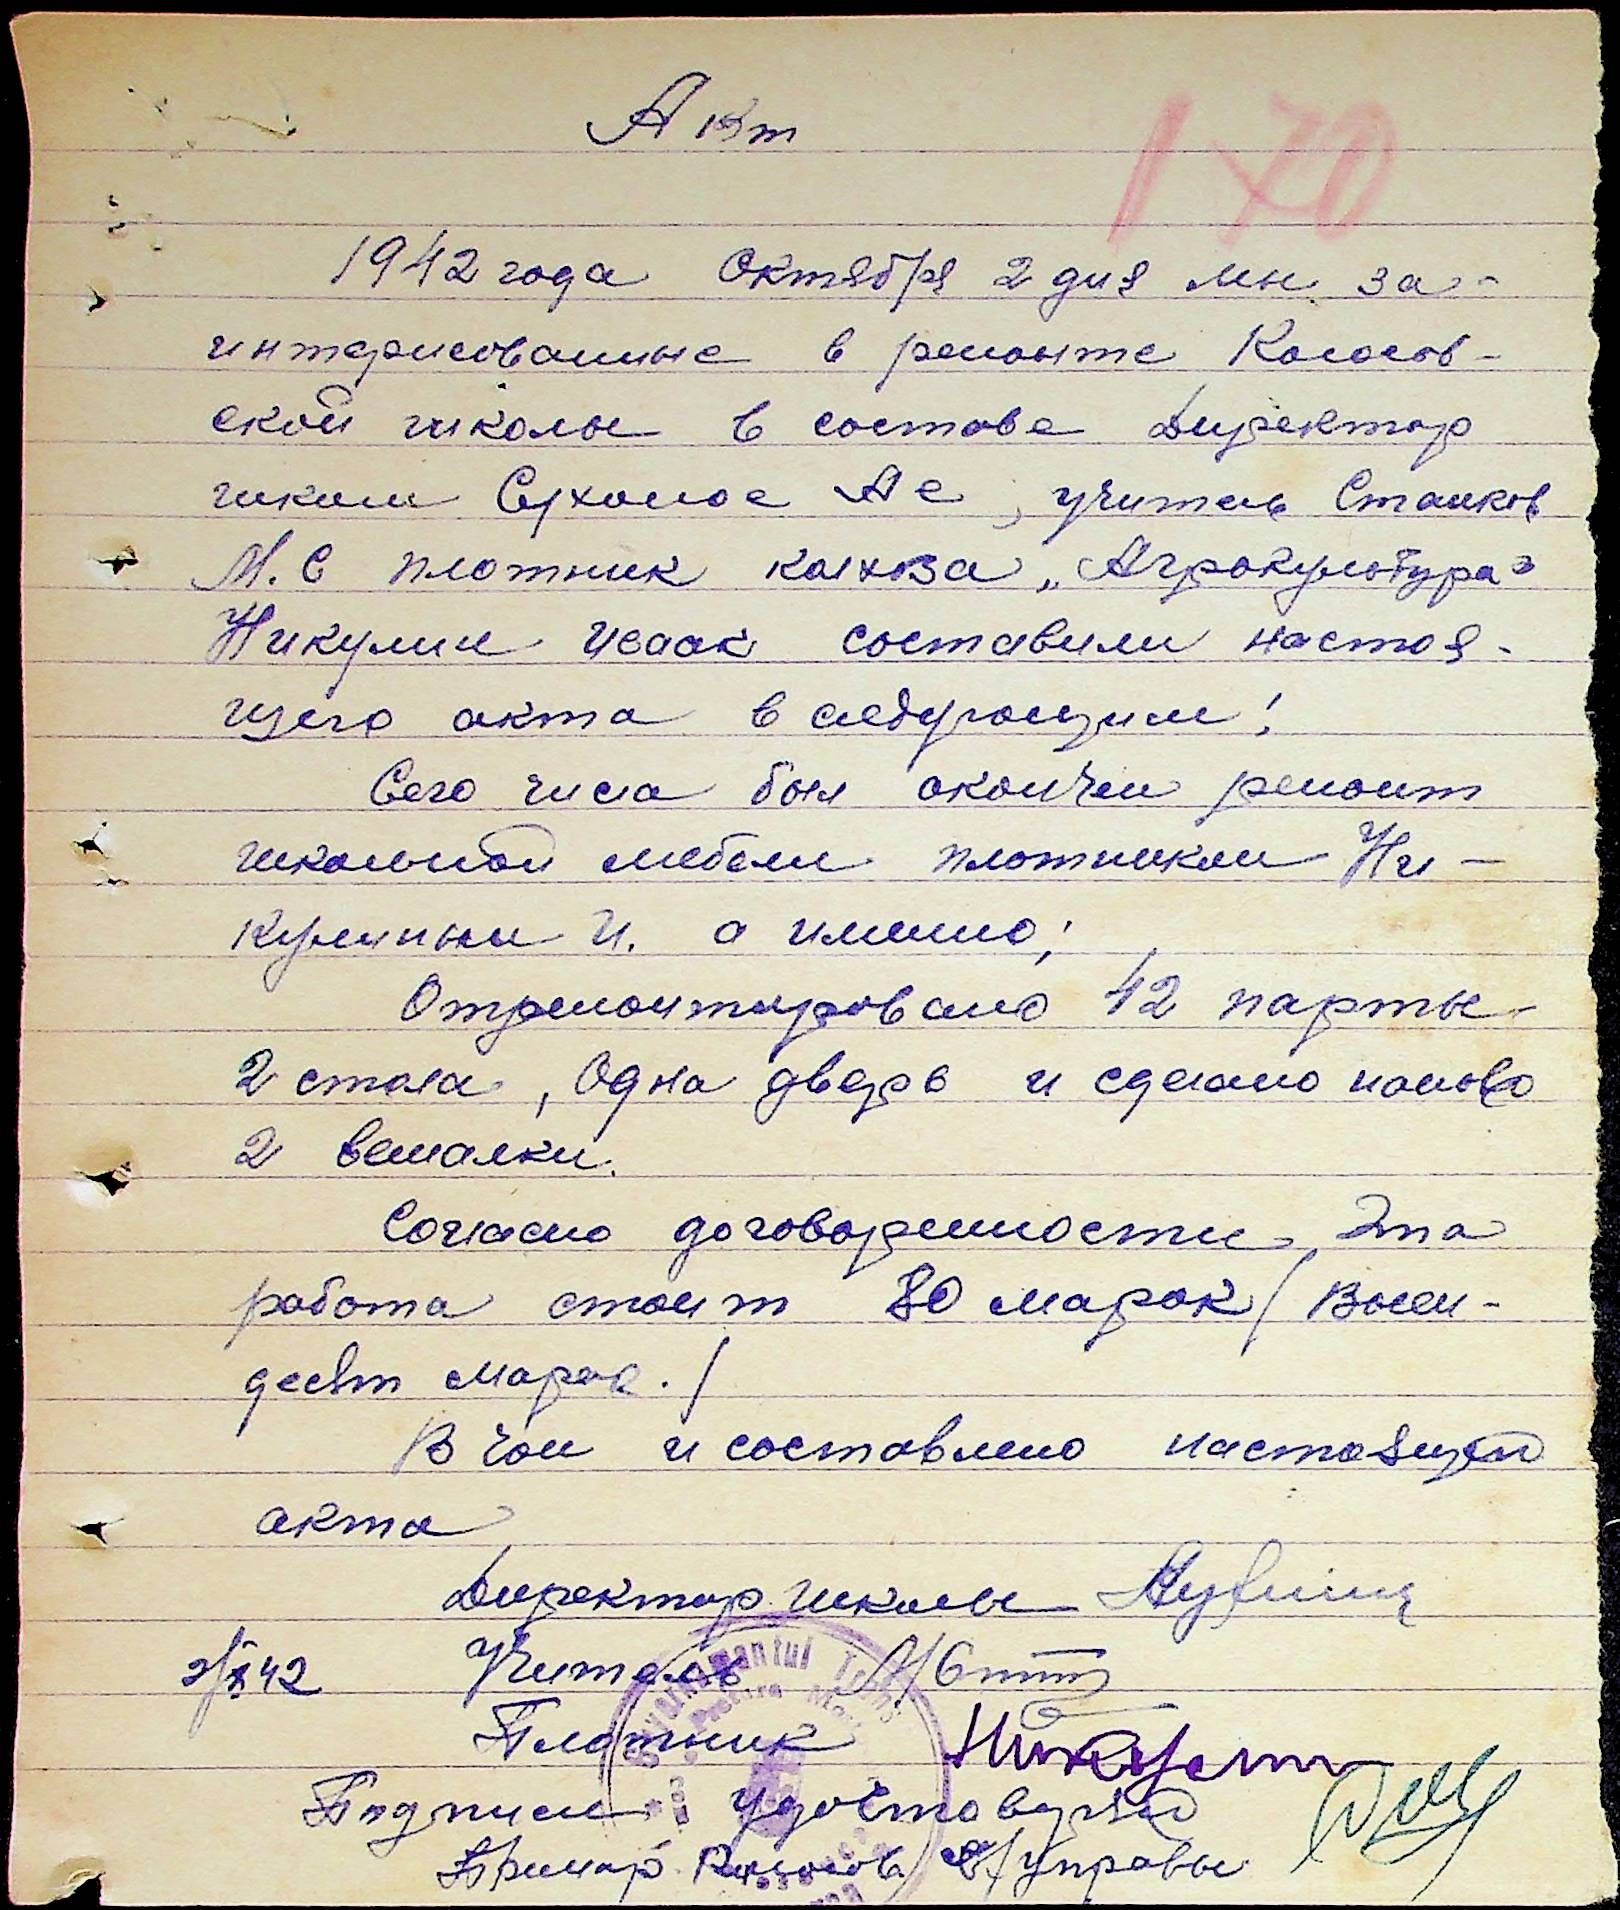 Акт
170
1942 года Октября 2 дня мы за-
интерисованные в ремонте Колосов-
ской школы в составе Директор
школи Сухонос А С, учитель Станков
М. С плотник колхоза „Агрокультура"
Никулин Исаак составили настоя-
щего акта в следующим!
Сего числа был окончен ремонт
школьной мебели плотником Ни-
кулиным И. а именно;
Отремонтировано 42 парты
2 стола, Одна дверь и сделано наново
2 вешалки.
Согласно договоренности Эта
работа стоит 80 марок / Восем-
десят марок. /
В чом и составлено настоящей
акта
Директор школы
2/X 42 Учитель
Плотник Никулин
Подписи удостоверяю
Примар Колосов. управы
Guvernamântul Trans